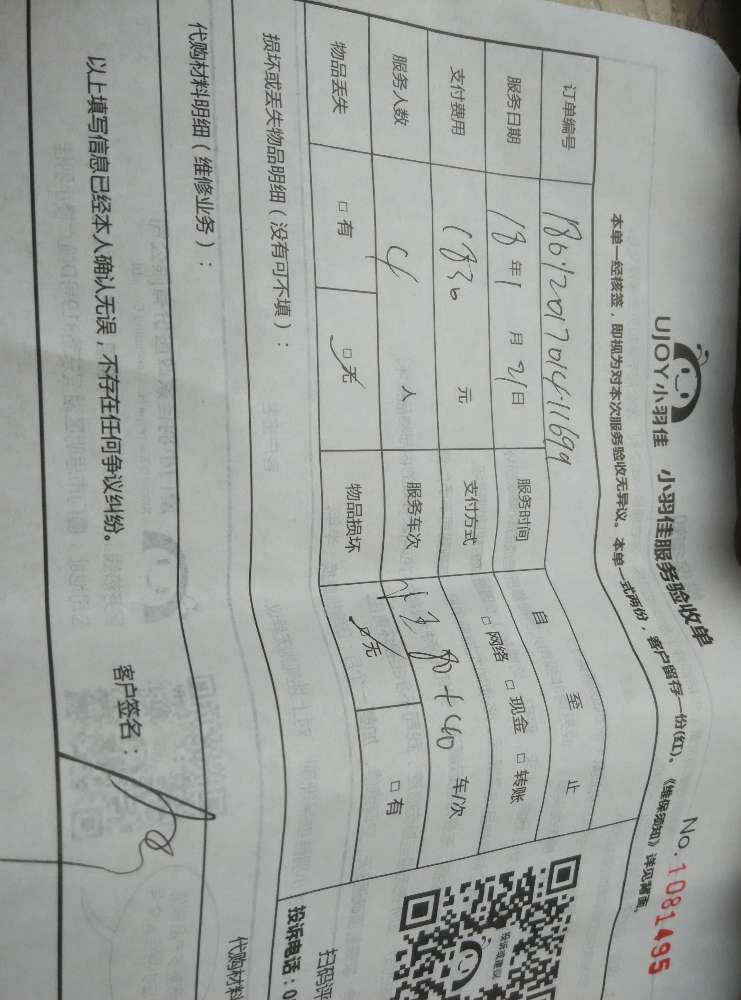 UJOY小羽佳 小羽佳服务验收单 No.1081495
本单一经核签，即视为对本次服务验收无异议。本单一式两份，客户留存一份(红)。《维保须知》详见背面。
订单编号
服务日期 18年1月21日 服务时间 自 至 止
支付费用 元 支付方式 □网络 □现金 □转账
服务人数 4 人 服务车次 车/次
物品丢失 □有 □无 物品损坏 □无 □有
损坏或丢失物品明细（没有可不填）：
代购材料明细（维修业务）：
代购材料
以上填写信息已经本人确认无误，不存在任何争议纠纷。
客户签名：
投诉或建议
扫码评
投诉电话：0